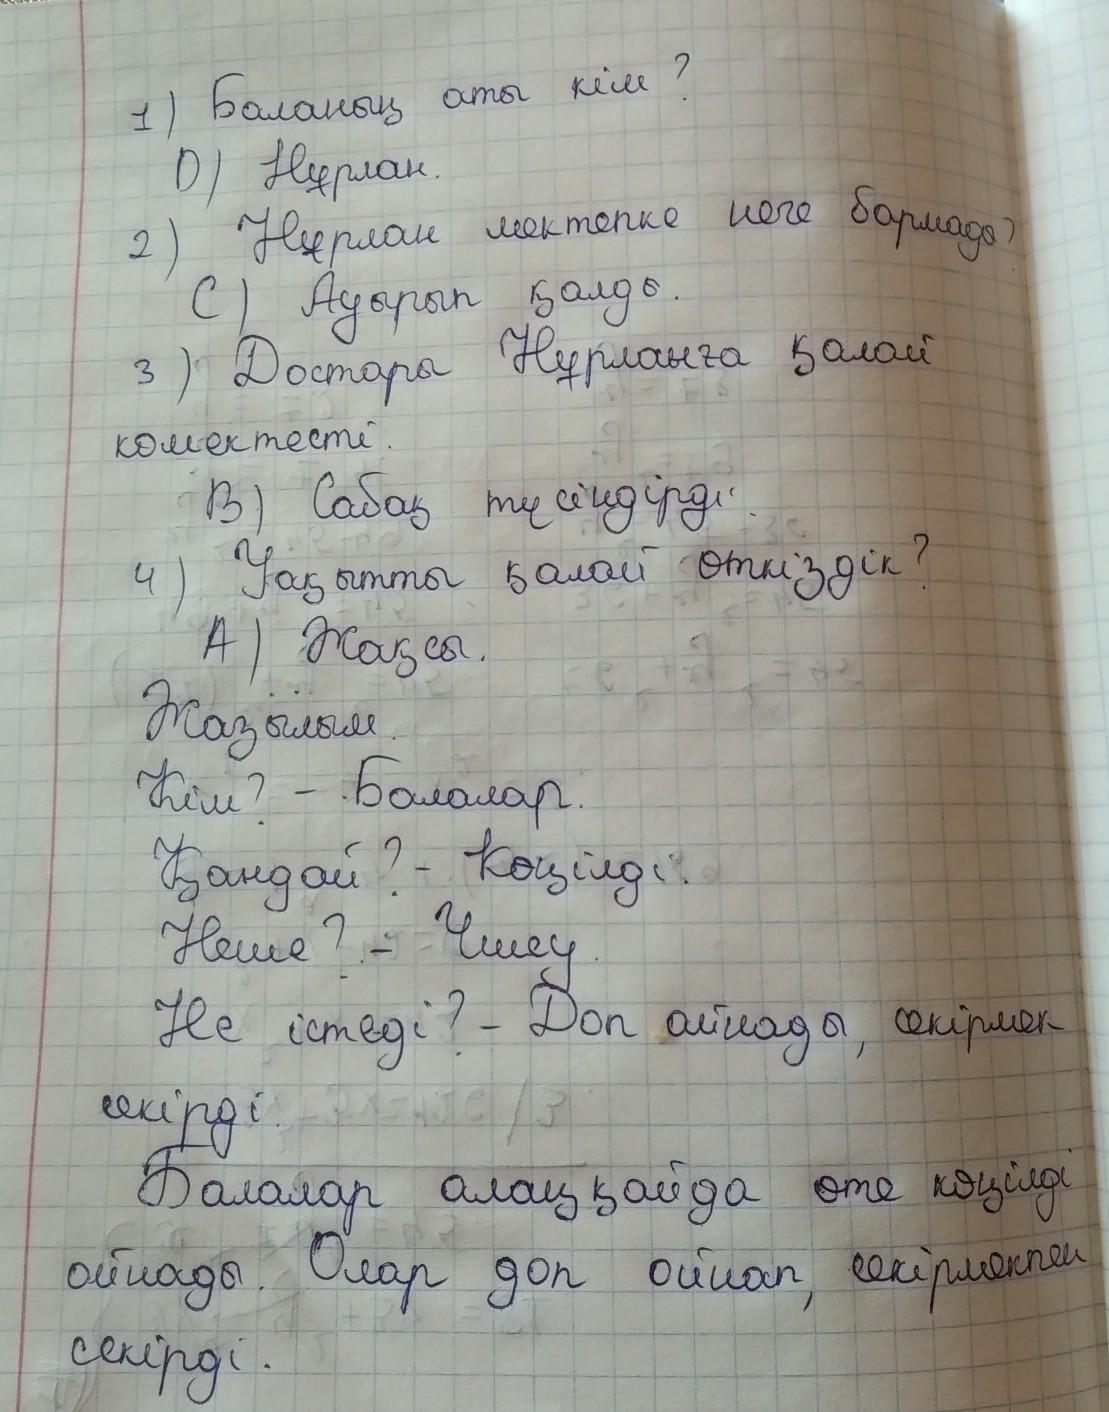 1) Баланың аты кім?
D) Нұрлан.
2) Нұрлан мектепке неге бармады?
С) Ауырып қалды.
3) Достары Нұрланға қалай
көмектесті.
В) Сабақ түсіндірді.
4) Уақытты қалай өткіздік?
А) Жақсы.
Жазылым.
Кім? - Балалар.
Қандай? - Көңілді.
Неше? - Үшеу.
Не істеді? - Доп ойнады, секірмек
секірді.
Балалар алаңқайда өте көңілді
ойнады. Олар доп ойнап, секірмекпен
секірді.